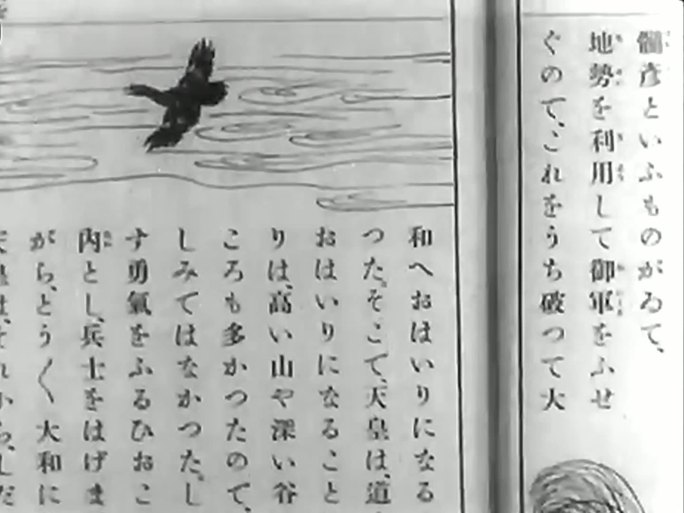 髓彦といふものがゐて、
地勢を利用して御軍をふせ
ぐので、これをうち破つて大
和へおはいりになる
つた。そこで、天皇は、道
おはいりになること
りは、高い山や深い谷
ころも多かつたので、
しみてはなかつた。し
す勇氣をふるひおこ
内とし、兵士をはげま
がら、とう〳〵大和に
天皇は、それから、しだ